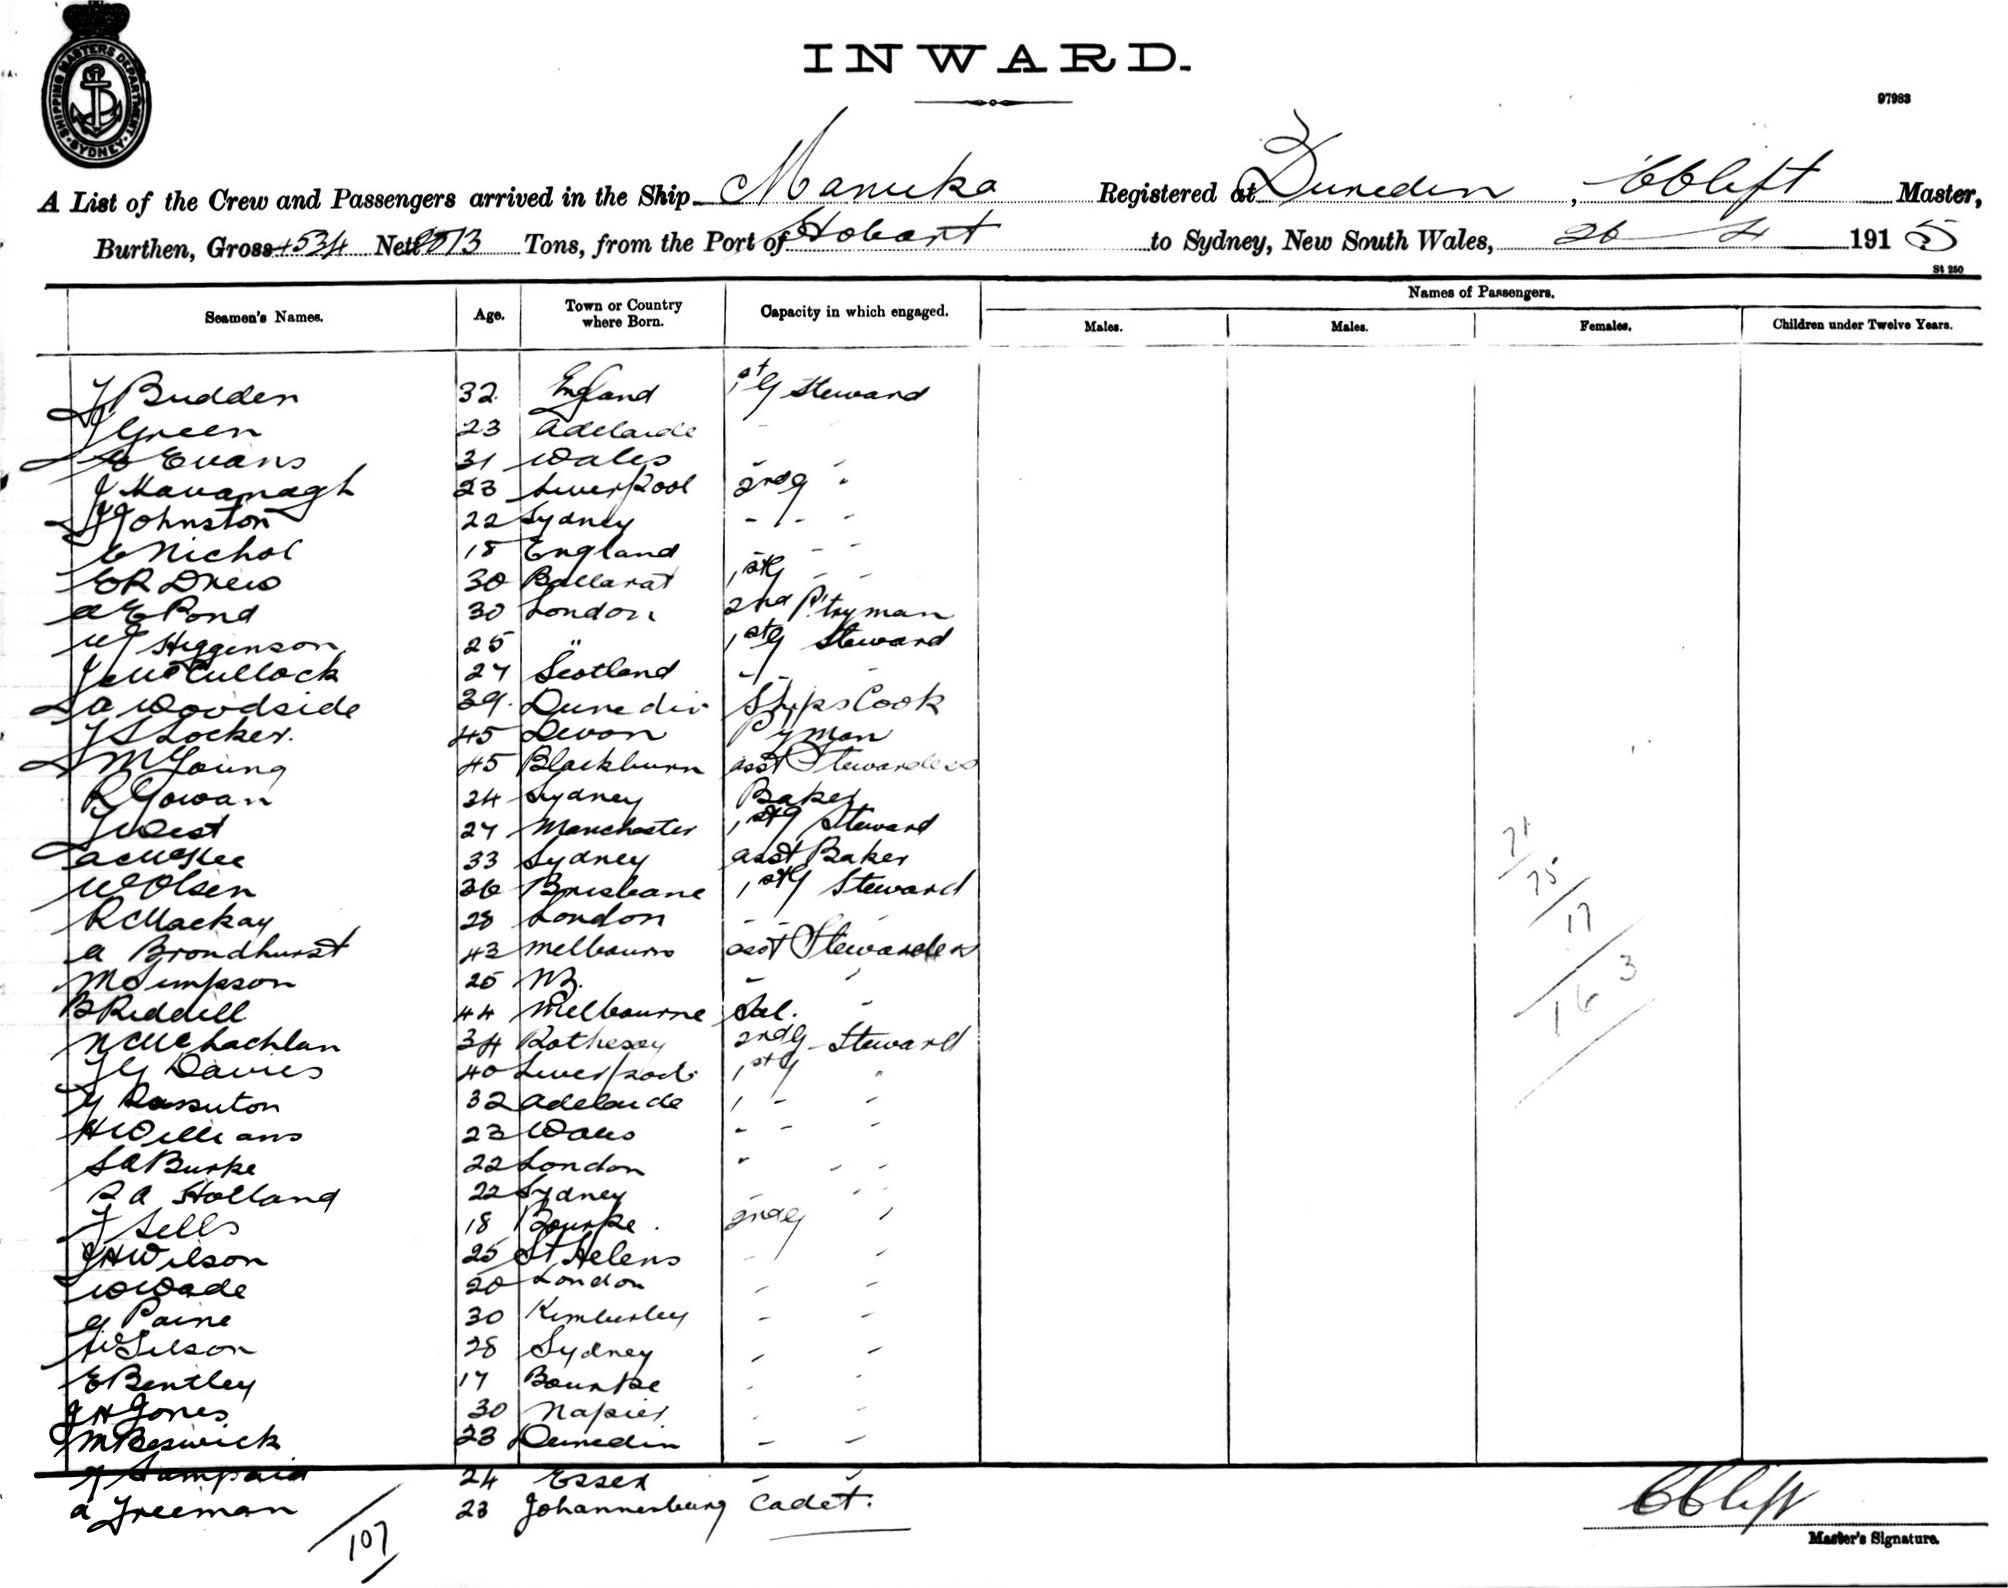 SHIPPING MASTERS DEPARTMENT SYDNEY
INWARD.
97983
A List of the Crew and Passengers arrived in the Ship Manuka Registered at Dunedin, C Clift Master,
Burthen, Gross 4534 Nett 2513 Tons, from the Port of Hobart to Sydney, New South Wales, 26 4 1915
St 250
Seamen's Names. Age. Town or Country where Born. Capacity in which engaged. Names of Passengers.
Males. Males. Females. Children under Twelve Years.
J Budden 32 England 1st G Steward
J Green 23 Adelaide " "
E Evans 31 Wales " "
J Kavanagh 23 Liverpool 2nd G "
J Johnston 22 Sydney - - -
E Nichol 18 England - -
E R Drew 30 Ballarat 1st G - -
A E Pond 30 London 2nd P'tryman
W J Higginson 25 " 1st G Steward
J McCullock 27 Scotland - - -
A Woodside 39 Dunedin Ships Cook
J S Locker. 45 Devon P'yman
M Young 45 Blackburn asst Stewardess
R Gowan 24 Sydney Baker
J West 27 Manchester 1st G Steward
A McKee 33 Sydney asst Baker
W Olsen 36 Brisbane 1st G Steward
R Mackay 28 London - - -
A Brondhurst 43 Melbourne asst Stewardess
M Simpson 25 NZ. - "
B Riddell 44 Melbourne Sal. "
N McLachlan 34 Rothesay 2nd G Steward
J G Davies 40 Liverpool 1st G "
32 Adelaide 1 - "
H Williams 23 Wales - - -
S A Burke 22 London " - -
R A Holland 22 Sydney - - -
J Sells 18 Bourke. 2nd G "
J H Wilson 25 St Helens - -
W Wade 20 London - -
G Paine 30 Kimberley - -
28 Sydney - -
E Bentley 17 Bourke - -
J H Jones 30 Napier - -
M Beswick 23 Dunedin - -
24 Essex - -
A Freeman 23 Johannesburg Cadet.
107
71
75
17
163
C Clift
Master's Signature.